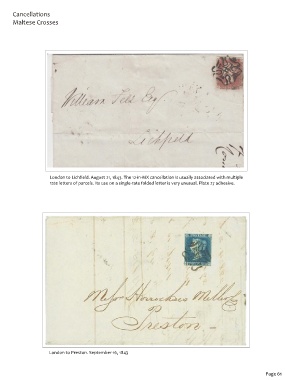 Cancellations
Maltese Crosses
William Esq
Lichfield
London to Lichfield. August 21, 1843. The cancellation is usually associated with multiple
rate letters or parcels. Its use on a single rate folded letter is very unusual. Plate 27 adhesive.
Preston
London to Preston. September 16, 1843
Page 61